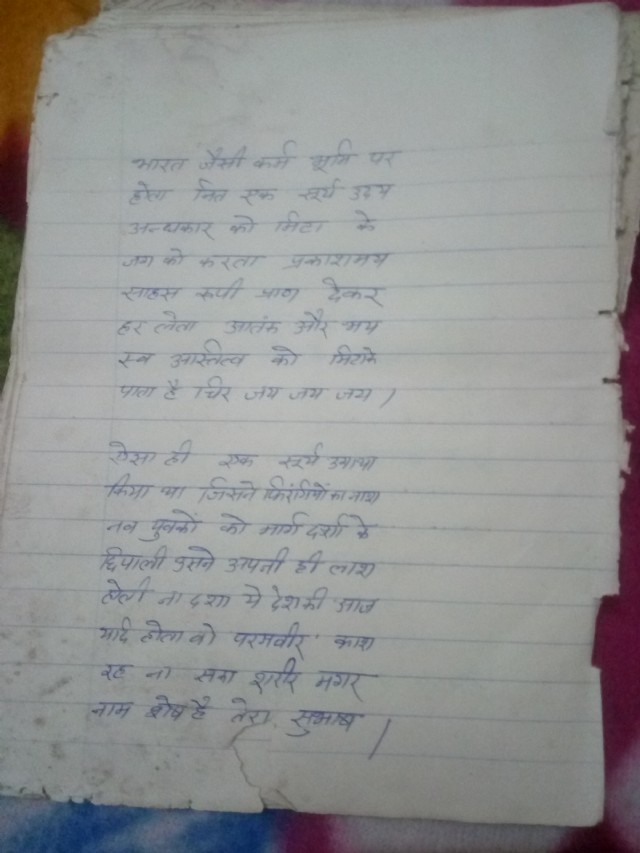 भारत जैसी कर्म भूमि पर
होता नित एक सूर्य उदय
अन्धकार को मिटा के
जग को करता प्रकाशमय
साहस रूपी प्राण देकर
हर लेता आतंक और भय
स्व अस्तित्व को मिटाके
पाता है चिर जय जय जय।
ऐसा ही एक सूर्य उगाया
किया था जिसने फिरंगियों का नाश
नव युवकों को मार्ग दर्शा के
छिपाली उसने अपनी ही लाश
होती ना दशा ये देश की आज
यदि होता वो परमवीर काश
रह ना सका शरीर मगर
नाम शेष है तेरा सुभाष।